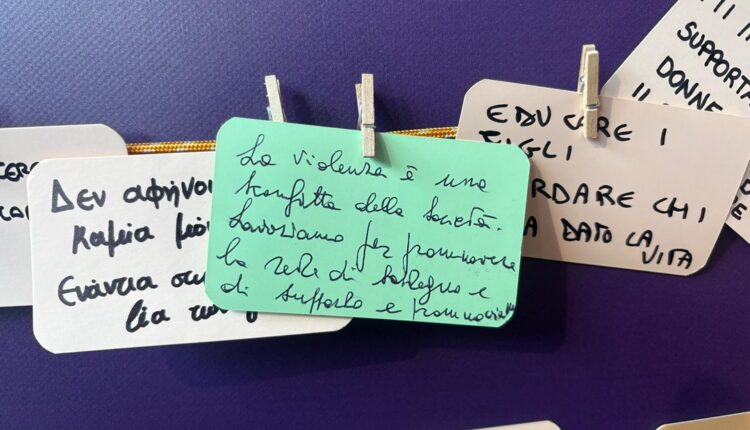 Δεν αφήνου
καμία μόν
Ενάντια στη
βία των γ
La violenza è una
sconfitta della società.
Lavoriamo per promuovere
la rete di sostegno e
di supporto e promuoviamo
EDUCARE I
FIGLI
RDARE CHI
A DATO LA
VITA
SUPPORTA
DONNE